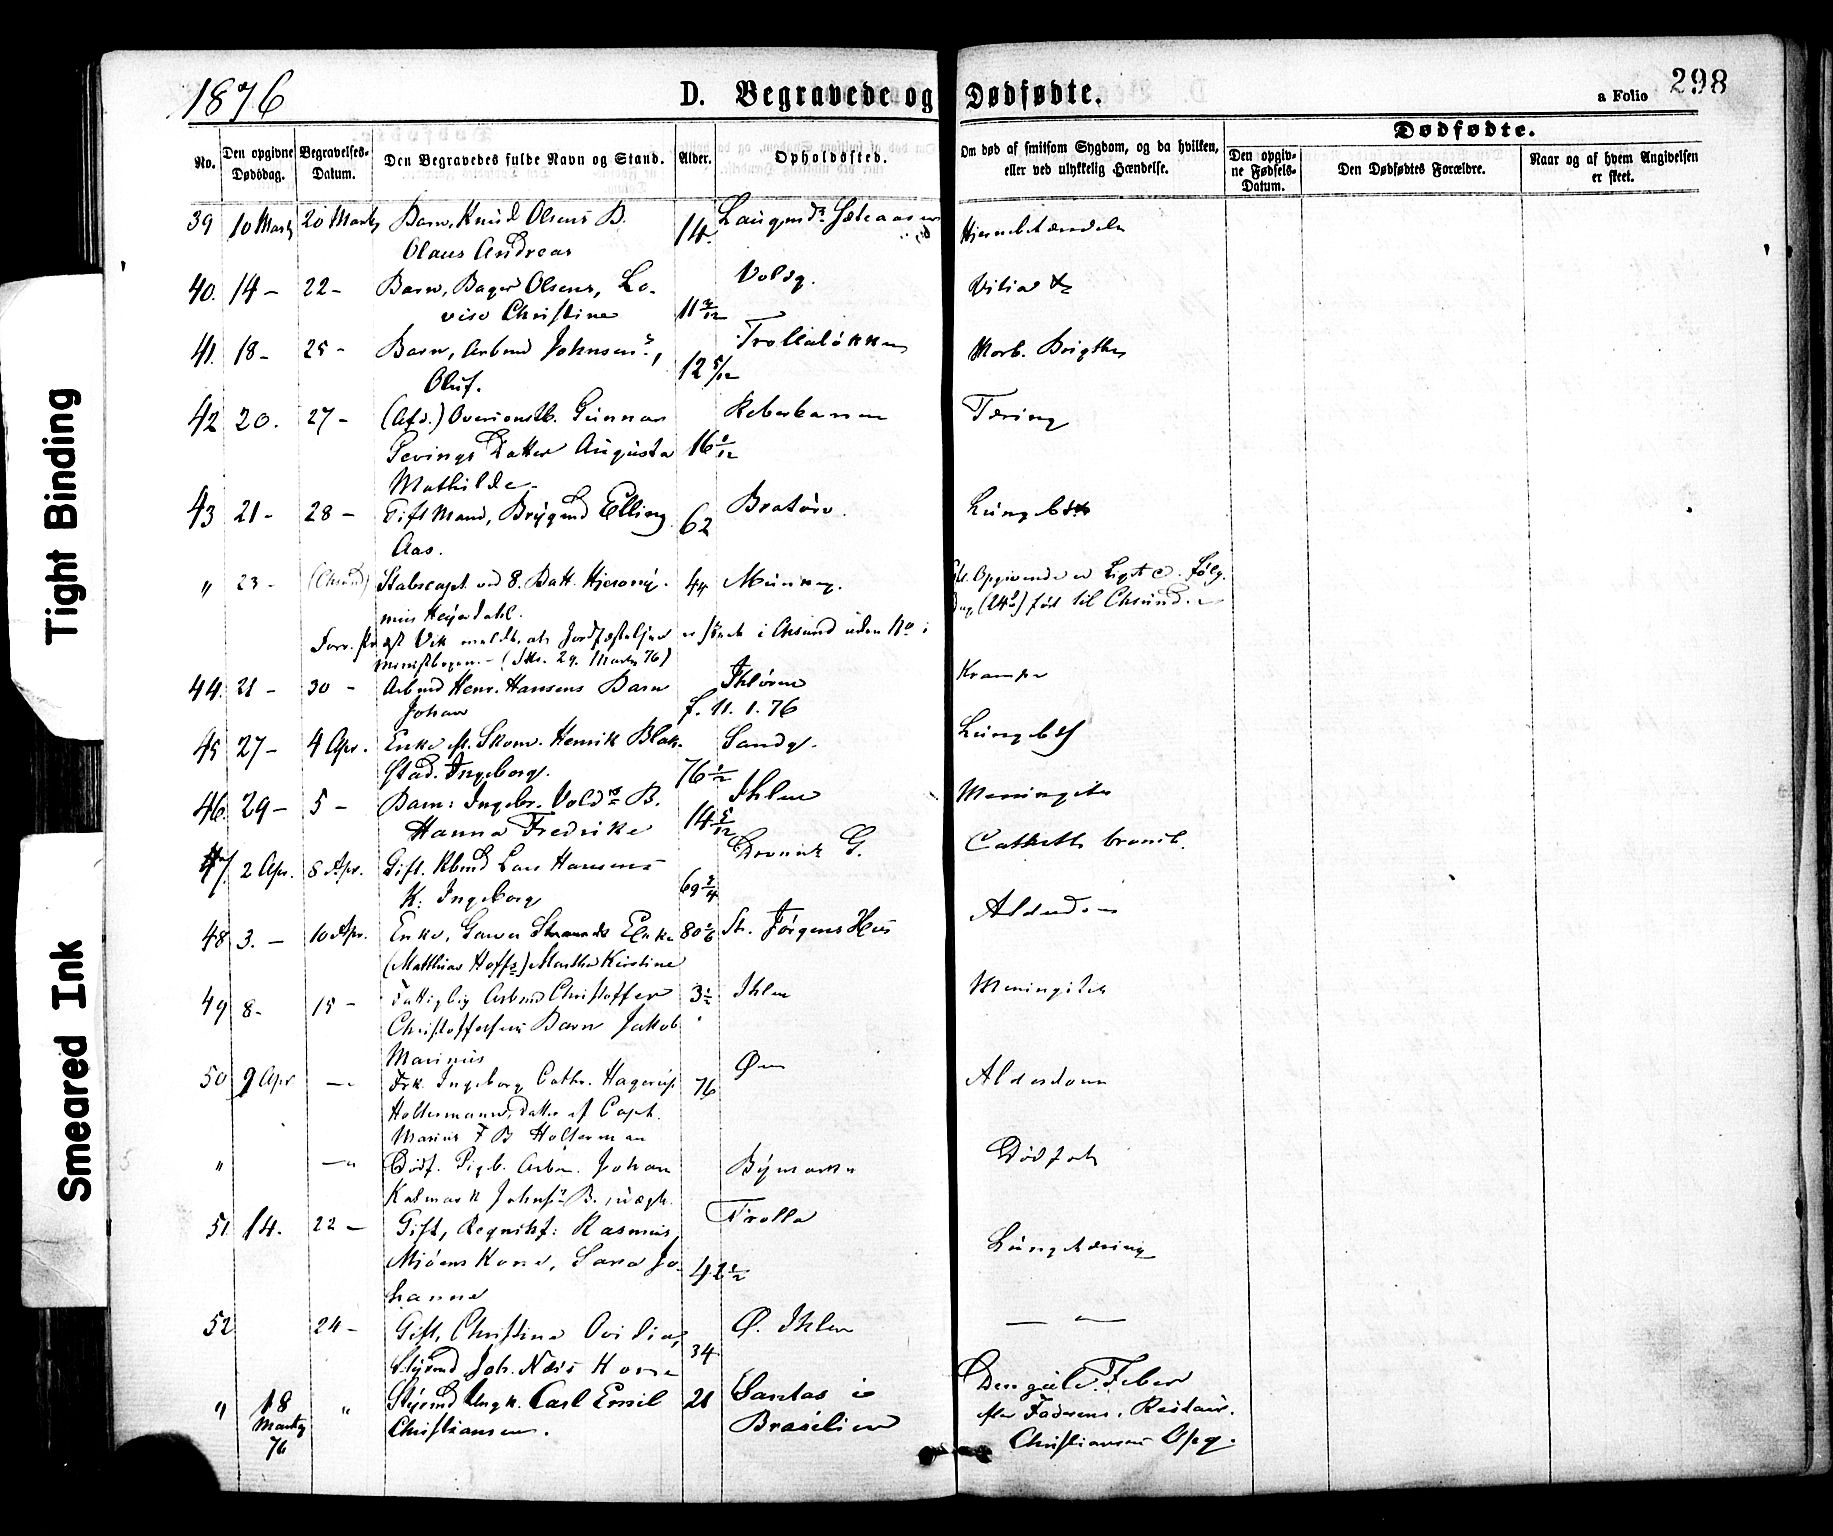 1876
D. Begravede og Dødfødte.
a Folio 298
Dødfødte.
No.
Den opgivne Dødsdag.
Begravelses-Datum.
Den Begravedes fulde Navn og Stand.
Alder.
Opholdssted.
Om død af smitsom Sygdom, og da hvilken, eller ved ulykkelig Hændelse.
Den opgivne Fødsels-Datum.
Den Dødfødtes Forældre.
Naar og af hvem Angivelsen er skeet.
39 10 Marts 20 Marts Barn, Knud Olsens B.
Olaus Andreas 14.
40. 14 - 22 - Barn, Bager Olsens, Lo- Voldg.
vise Christine 11
41. 18 - 25 - Barn, Arbmd Johnsens, Trollaløkken
Oluf. 12 5/12
42 20. 27 - (Afd.) Gunnar Reberbanen Tæring
Gevings Datter Augusta 16
Mathilde.
43 21 - 28 - Gift Mand, Brygmd Elling 62 Bratøre.
Aas.
" 23 - (Chrsund) Stabscapt. ved 8. Batt. Hjerony- 44 Munkeg.
mus Heyerdahl. (24de) ført til Chrsund.
Vik meldt, at Jordfæstelsen er i Chrsund uden No i
(Skr. 29. Marts 76)
44. 21 - 30 - Arbmd Henr. Hansens Barn Ihløren Krampe
Johan f. 11. 1. 76
45 27 - 4 Apr. Enke eft. Skom. Henrik Blak- Sandg.
stad. Ingeborg. 76 1/2
46. 29 - 5 - Barn: Ingebr. Volds B. Ihlen Meningitis
Hanna Fredrike 14 5/12
47. 2 Apr. 8 Apr. Gift. Rbmd Lars Hansens
K. Ingeborg 69 3/4
48 3. - 10 Apr. Enke, Garver Enke 80 St. Jørgens Hus Alderdom
(Matthias Hoffs) Martha Kirstine
49 8. 15 - Fattiglig Arbmd Christoffer 3 1/2 Ihlen Meningitis
Christoffersens Barn Jakob
Marinus
50 9 Apr - " Frk. Ingeborg Cathr. Hagerup 76 Øen Alderdom
Holtermann, Datter af Capt.
Marius F B Holterman
" - " Dødf. Pigeb. Arbm. Johan Bymarken Dødfødt
Johnsens B., uægt.
51 14. 22 - Gift, Rasmus Trolla Lungetæring
Mjøens Kone, Sara Jo- 42 1/2
hanna
52 24 - Gift, Christine Ovidia, Ø. Ihlen - " -
Styrmd Joh. Næss Kone 34.
" 18 Marts 76 " Styrmd Ungk. Carl Emil 21 Santos i Den gule Feber
Christiansen. Brasilien efter Faderens, Restaur.
Christiansens Opg.
Tight Binding
Smeared Ink